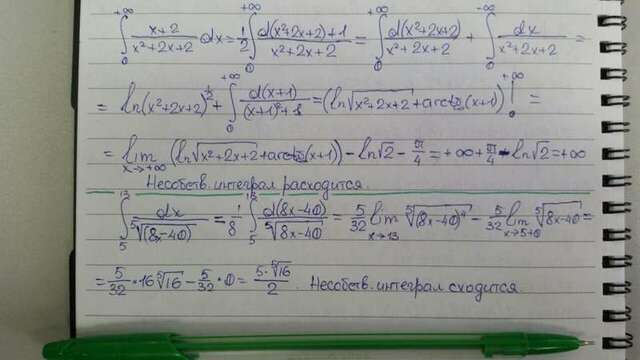 ∫₀^{+∞} (x+2)/(x²+2x+2) dx = 1/2 ∫₀^{+∞} (d(x²+2x+2)+1)/(x²+2x+2) = ∫₀^{+∞} d(x²+2x+2)/(x²+2x+2) + ∫₀^{+∞} dx/(x²+2x+2) =
= ln(x²+2x+2)^{1/2} + ∫₀^{+∞} d(x+1)/((x+1)²+1) = (ln√(x²+2x+2) + arctg(x+1)) |₀^{+∞} =
= lim_{x→+∞} (ln√(x²+2x+2) + arctg(x+1)) - ln√2 - π/4 = +∞ + π/4 - ln√2 = +∞
Несобств. интеграл расходится.
∫₅^{13} dx/⁵√(8x-40) = 1/8 ∫₅^{13} d(8x-40)/⁵√(8x-40) = 5/32 lim_{x→13} ⁵√(8x-40)⁴ - 5/32 lim_{x→5+0} ⁵√(8x-40) =
= 5/32 * 16 ⁵√16 - 5/32 * 0 = 5·⁵√16/2. Несобств. интеграл сходится.